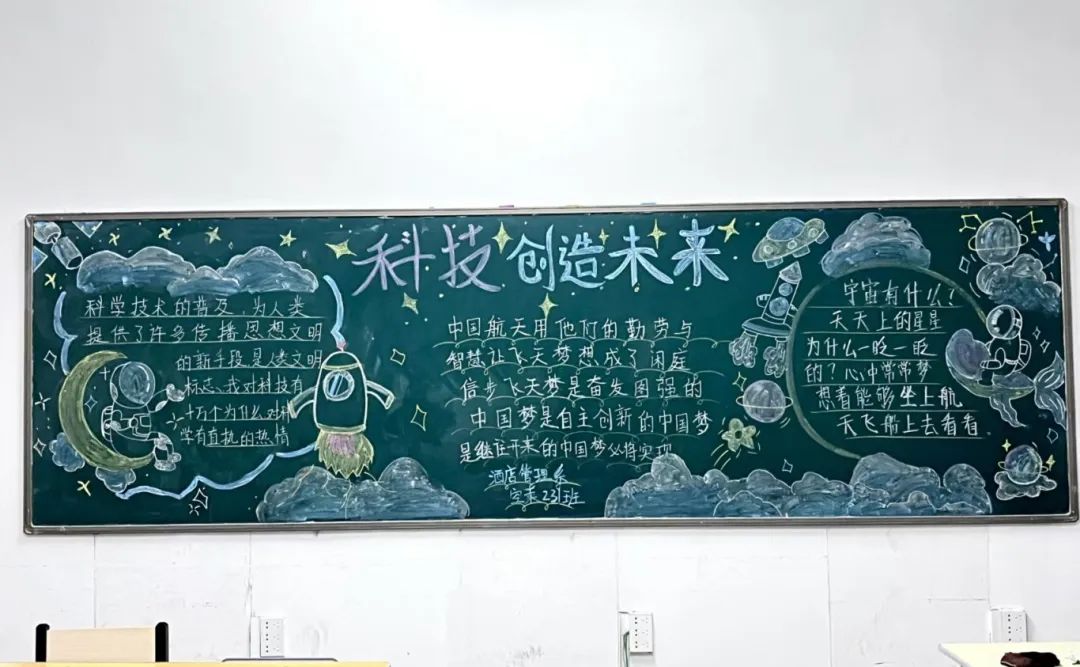 科技创造未来
科学技术的普及,为人类
提供了许多传播思想文明
的新手段是人类文明
标志、我对科技有
十万个为什么对科
学有直执的热情
中国航天用他们的勤劳与
智慧让飞天梦想成了闲庭
信步飞天梦是奋发图强的
中国梦是自主创新的中国梦
是继往开来的中国梦必将实现
酒店管理系
空乘231班
宇宙有什么?
天天上的星星
为什么一眨一眨
的?心中常常梦
想着能够坐上航
天飞船上去看看